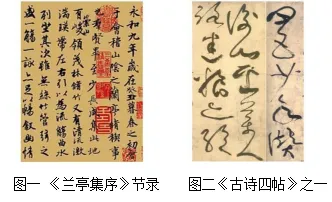 永和九年歲在癸丑暮春之初會
于會稽山陰之蘭亭脩稧事
也群賢畢至少長咸集此地
有崇山峻領茂林脩竹又有清流激
湍暎帶左右引以為流觴曲水
列坐其次雖無絲竹管弦之
盛一觴一詠亦足以暢敘幽情
四五少年讚
衡山采藥人
路迷粮亦絕
图一 《兰亭集序》节录
图二《古诗四帖》之一